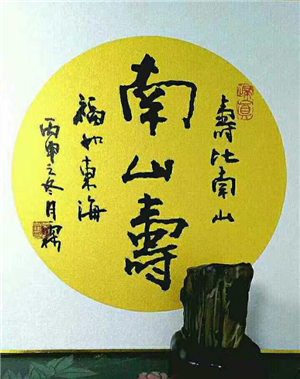 壽比南山
南山壽
福如東海
丙申之冬月